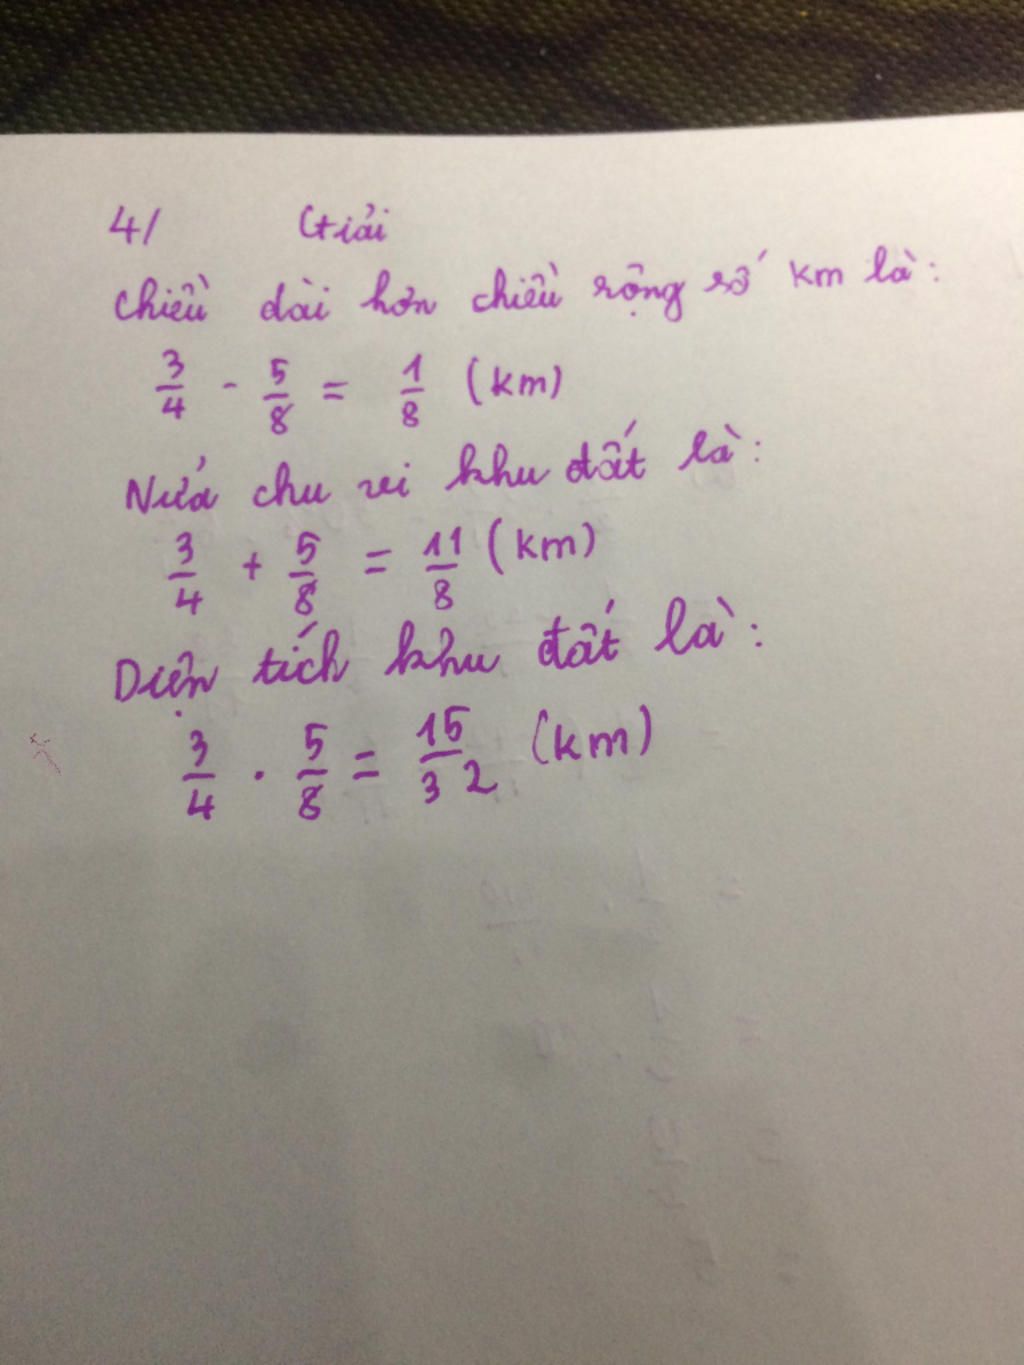 4/ Giải
Chiều dài hơn chiều rộng số km là:
3/4 - 5/8 = 1/8 (km)
Nửa chu vi khu đất là:
3/4 + 5/8 = 11/8 (km)
Diện tích khu đất là:
3/4 . 5/8 = 15/32 (km)